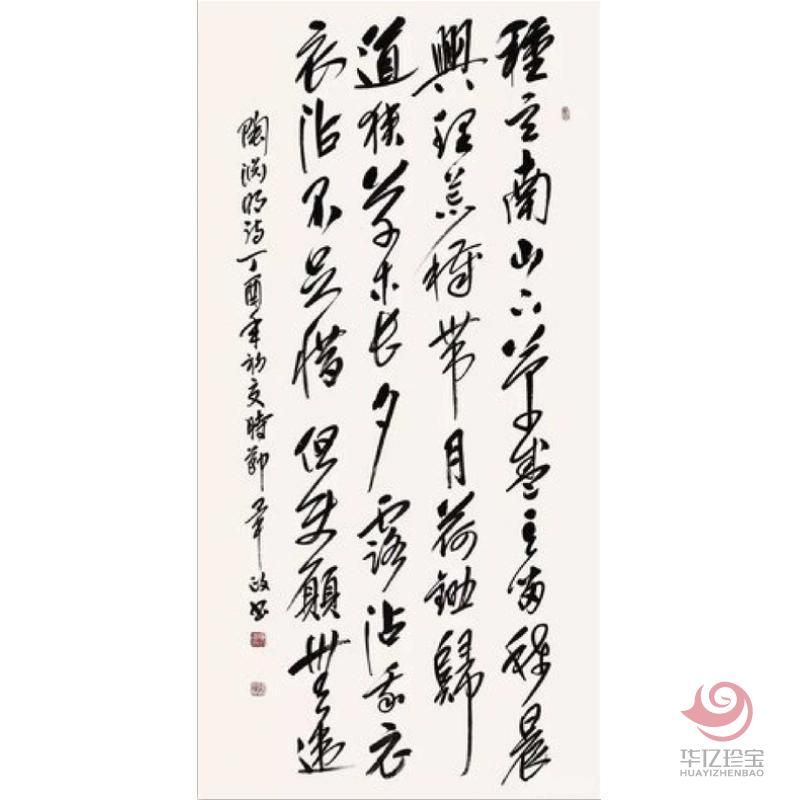 種豆南山下草盛豆苗稀晨
興理荒穢帶月荷鋤歸
道狹草木長夕露沾我衣
衣沾不足惜但使願無違
陶渊明诗丁酉年初夏時節政书
华亿珍宝
HUAYIZHENBAO